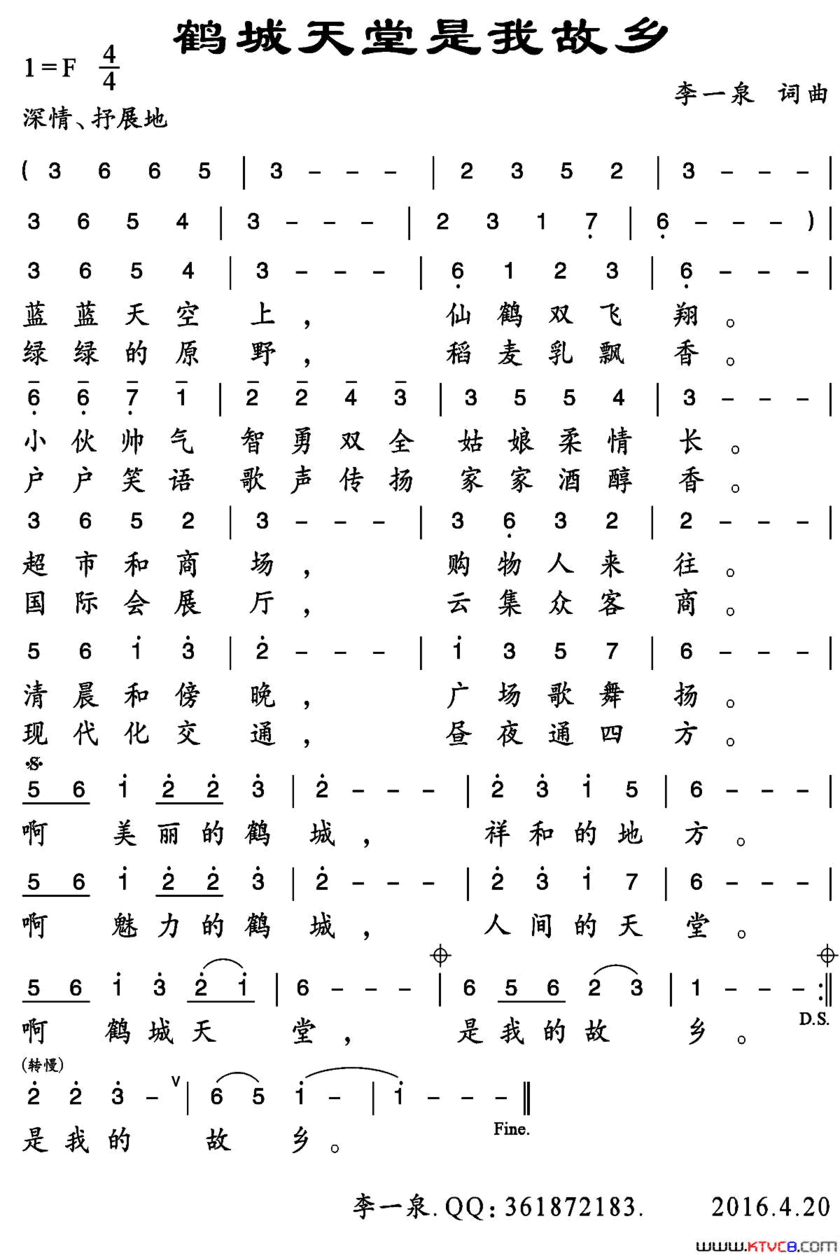 鹤城天堂是我故乡
1=F 4/4
李一泉 词曲
深情、抒展地
( 3 6 6 5 | 3 - - - | 2 3 5 2 | 3 - - - |
3 6 5 4 | 3 - - - | 2 3 1 7̣ | 6̣ - - - ) |
3 6 5 4 | 3 - - - | 6̣ 1 2 3 | 6̣ - - - |
蓝蓝天空上， 仙鹤双飞翔。
绿绿的原野， 稻麦乳飘香。
6̣ 6̣ 7̣ 1 | 2 2 4 3 | 3 5 5 4 | 3 - - - |
小伙帅气 智勇双全 姑娘柔情长。
户户笑语 歌声传扬 家家酒醇香。
3 6 5 2 | 3 - - - | 3 6̣ 3 2 | 2 - - - |
超市和商场， 购物人来往。
国际会展厅， 云集众客商。
5 6 1̇ 3̇ | 2̇ - - - | 1̇ 3 5 7 | 6 - - - |
清晨和傍晚， 广场歌舞扬。
现代化交通， 昼夜通四方。
5 6 1̇ 2̇ 2̇ 3̇ | 2̇ - - - | 2̇ 3̇ 1̇ 5 | 6 - - - |
啊 美丽的鹤城， 祥和的地方。
5 6 1̇ 2̇ 2̇ 3̇ | 2̇ - - - | 2̇ 3̇ 1̇ 7 | 6 - - - |
啊 魅力的鹤城， 人间的天堂。
5 6 1̇ 3̇ 2̇ 1̇ | 6 - - - | 6 5 6 2 3 | 1 - - - :||
啊 鹤城天堂， 是我的故乡。 D.S.
(转慢)
2̇ 2̇ 3̇ - ∨ | 6 5 1̇ - | 1̇ - - - ||
是我的 故乡。 Fine.
李一泉.QQ:361872183. 2016.4.20
www.KTVC8.com